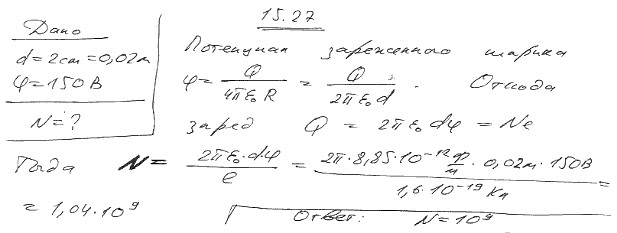 15.27
Дано
d=2см=0,02м
φ=150В
N=?
Потенциал заряженного шарика
φ= Q / 4πε₀R = Q / 2πε₀d . Отсюда
заряд Q = 2πε₀dφ = Ne
Тогда N = 2πε₀·dφ / e = 2π·8,85·10⁻¹² Ф/м · 0,02м·150В / 1,6·10⁻¹⁹ Кл =
= 1,04·10⁹
Ответ: N=10⁹